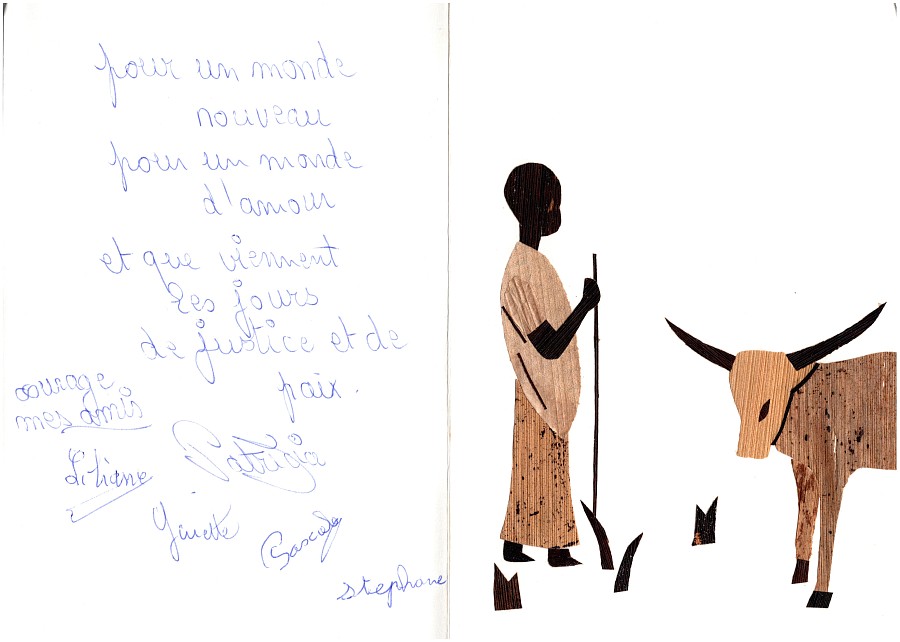 pour un monde
nouveau
pour un monde
d'amour
et que viennent
les jours
de justice et de
paix.
courage
mes amis
Liliane
Patrizia
Ginette
Pascale
stephane